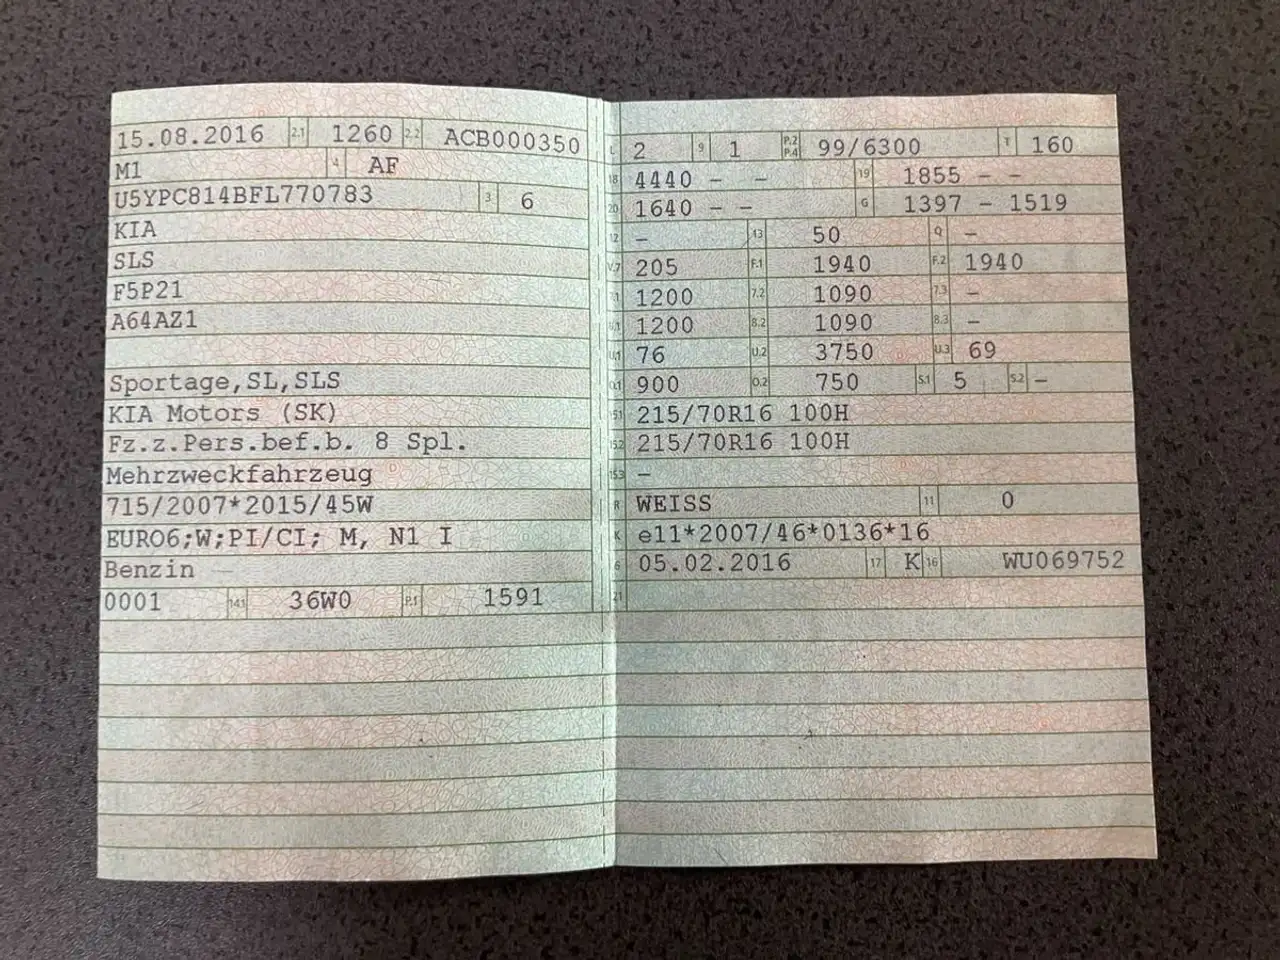 15.08.2016 2.1 1260 2.2 ACB000350
M1 4 AF
U5YPC814BFL770783 3 6
KIA
SLS
F5P21
A64AZ1
Sportage,SL,SLS
KIA Motors (SK)
Fz.z.Pers.bef.b. 8 Spl.
Mehrzweckfahrzeug
715/2007*2015/45W
EURO6;W;PI/CI; M, N1 I
Benzin
0001 14.1 36W0 P.1 1591
L 2 9 1 P.2 P.4 99/6300 T 160
18 4440 - - 19 1855 - -
20 1640 - - G 1397 - 1519
12 - 13 50 Q -
V.7 205 F.1 1940 F.2 1940
7.1 1200 7.2 1090 7.3 -
8.1 1200 8.2 1090 8.3 -
U.1 76 U.2 3750 U.3 69
O.1 900 O.2 750 S.1 5 S.2 -
15.1 215/70R16 100H
15.2 215/70R16 100H
15.3 -
R WEISS 11 0
K e11*2007/46*0136*16
6 05.02.2016 17 K 16 WU069752
21